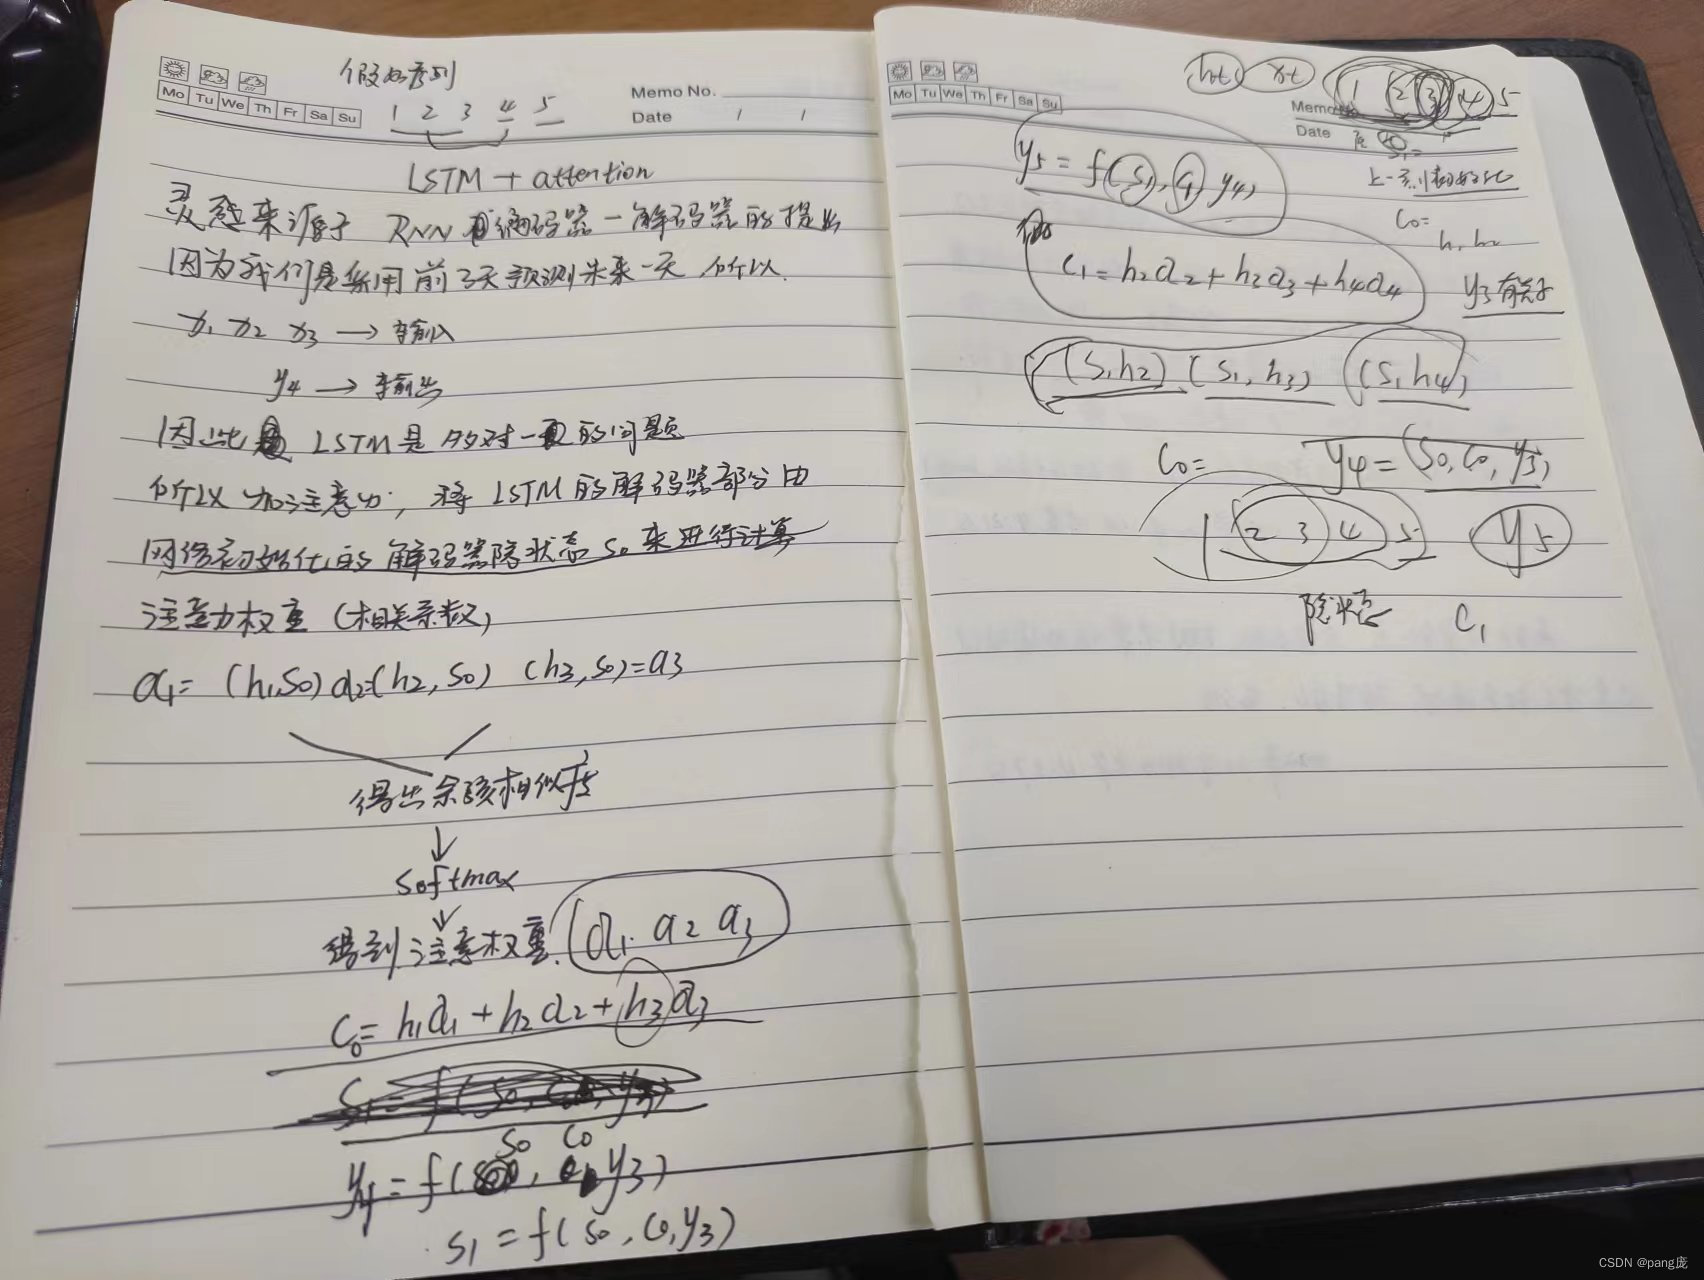 假如序列
Mo Tu We Th Fr Sa Su
1 2 3 4 5
Memo No.
Date / /
LSTM + attention
灵感来源于 RNN 编码器-解码器的提出
因为我们是采用前3天预测未来一天 所以
x1 x2 x3 → 输入
y4 → 输出
因此 LSTM是多对一的问题
所以加注意力，将LSTM的解码器部分由
网络初始化的解码器隐状态 S0 来进行计算
注意力权重（相关系数）
a1= (h1,S0) a2=(h2,S0) (h3,S0)=a3
得出余弦相似度
↓
softmax
↓
得到注意权重 (a1 a2 a3
C0= h1a1 + h2a2 + h3a3
S1= f(S0, C0, y3)
S0 C0
y4 = f( , y3)
S1 = f( S0, C0, y3)
ht xt 1 2 3 4 5
Mo Tu We Th Fr Sa Su
Memo No.
Date
S1=
y5 = f(S1, C1, y4)
C0=
h1 h2
C1 = h2a2 + h3a3 + h4a4
y3 有关于
(S1h2) (S1, h3) (S1h4)
C0= y4 = (S0, C0, y3)
1 2 3 4 5 y5
隐状态 C1
CSDN @pang庞